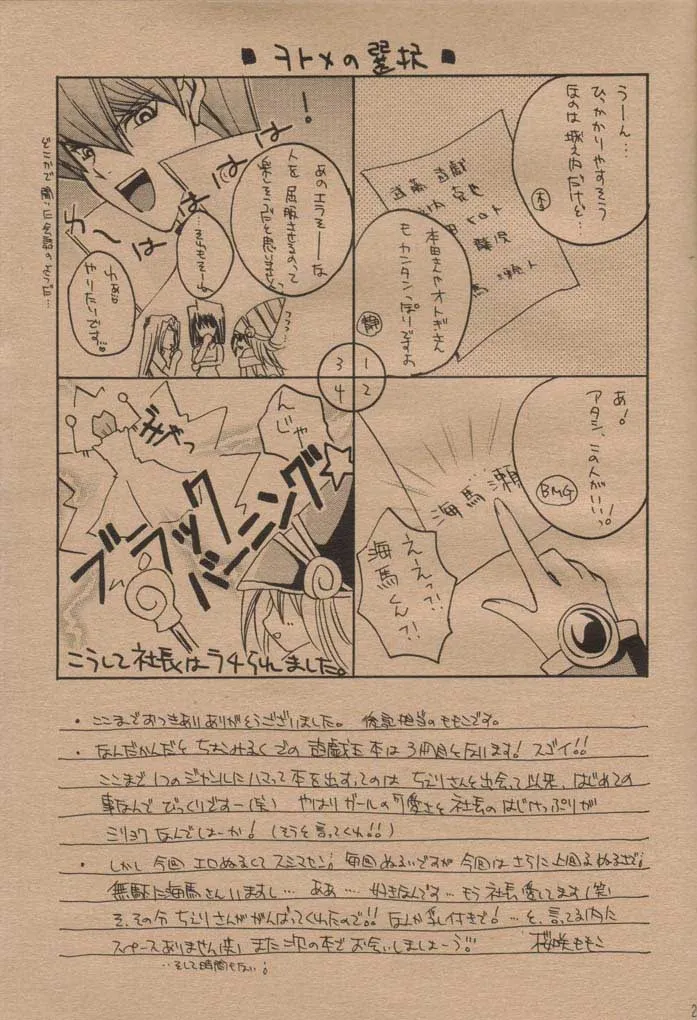 ■ ヲトメの選択 ■
うーん…
ひっかかりやすそう
なのは城之内だけど…
杏
武藤 遊戯
克也
本田 ヒロト
瀬人
本田さんやオトギさん
もカンタンっぽいですよ
静
1
2
3
4
あ!
アタシ、この人がいいっ。
BMG
海馬 瀬
えーえっ?!
海馬くん?!
!
わーはははは
あのエラそーな
人を屈服させるのって
楽しそうだと思いません?
…それもそーね
わぁい
やりたいです。
ウフフ…
どこかで聞いた会話のようだ…
んじゃ
ブラック
バーニング☆
うぎゃっ
こうして社長はラチられました。
・ここまでおつきあいありがとうございました。 後記担当のももこです。
・なんだかんだとちぇりみるくでの遊戯王本は3冊目を数えます! スゴイ!!
ここまで1つのジャンルにハマって本を出すってのはちぇりさんと出会って以来、はじめての
事なんでびっくりですー(笑) やはりガールの可愛さと社長のはじけっぷりが
ミリョクなんでしょーか!(そうを言ってくれ!!)
・しかし今回エロぬるくてスミマセン; 毎回ぬるいですが今回はさらに上回るぬるさで;
無駄に海馬さんいますし… ああ… 好きなんです… もう社長愛してます(笑)
そ、その分ちぇりさんががんばってくれたので!! なんか乳付きで! …と、言ってる内に
スペースありません(笑) また次の本でお会いしましょーう!! 桜咲ももこ
…そして時間もない;
2